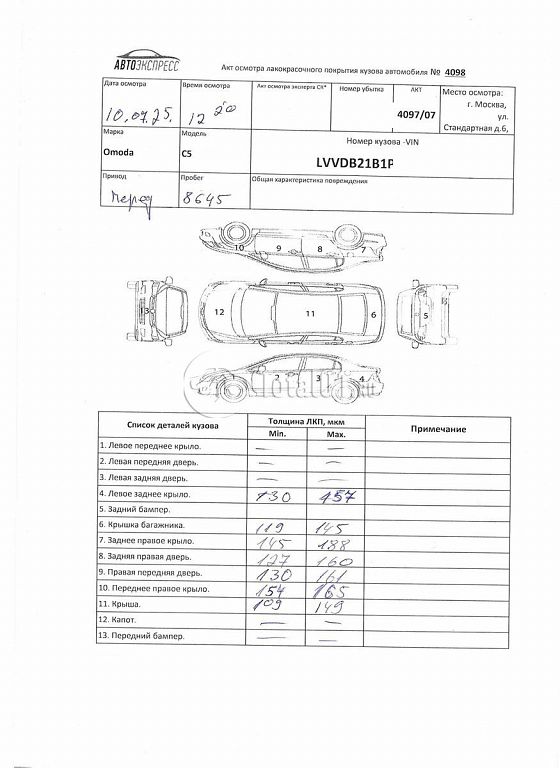 АВТОЭКСПРЕСС
Акт осмотра лакокрасочного покрытия кузова автомобиля № 4098
Дата осмотра Время осмотра Акт осмотра эксперта СК* Номер убытка АКТ Место осмотра:
10.07.25. 12 20 4097/07 г. Москва,
ул.
Стандартная д.6,
Марка Модель Номер кузова -VIN
Omoda C5 LVVDB21B1P
Привод Пробег Общая характеристика повреждений
Перед 8645
10 9 8 7
13 12 11 6 5
2 3 4
Total01.ru
Список деталей кузова Толщина ЛКП, мкм Примечание
Min. Max.
1. Левое переднее крыло. — —
2. Левая передняя дверь. — —
3. Левая задняя дверь. — —
4. Левое заднее крыло. 130 157
5. Задний бампер.
6. Крышка багажника. 119 145
7. Заднее правое крыло. 145 188
8. Задняя правая дверь. 127 160
9. Правая передняя дверь. 130 161
10. Переднее правое крыло. 154 165
11. Крыша. 109 149
12. Капот. — —
13. Передний бампер. — —